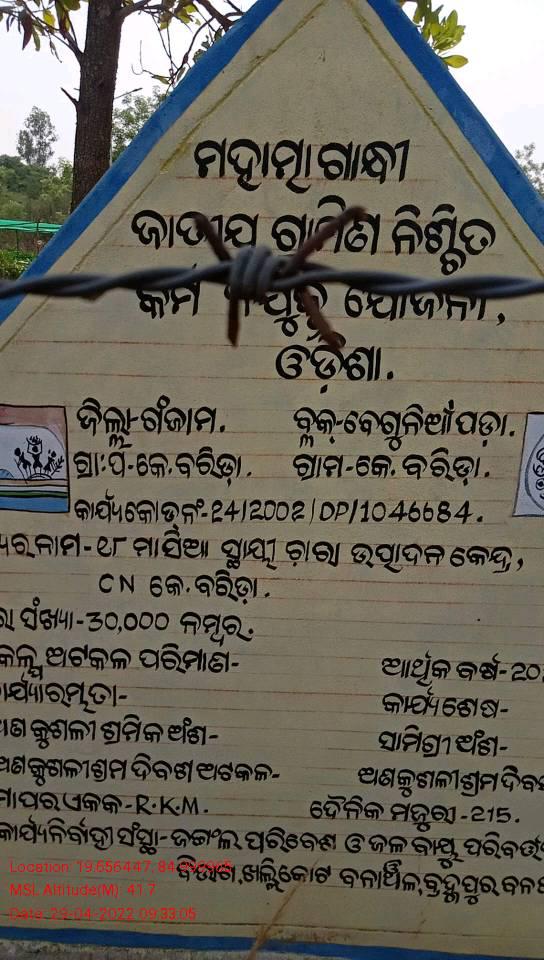 ମହାତ୍ମା ଗାନ୍ଧୀ
ଜାତୀୟ ଗ୍ରାମିଣ ନିଶ୍ଚିତ
ଯୋଜନା,
ଓଡ଼ିଶା.
ଜିଲ୍ଲା-ଗଂଜାମ. ବ୍ଲକ୍-ବେଗୁନିଆଁପଡ଼ା.
ଗ୍ରା:ପଂ-କେ.ବରିଡ଼ା. ଗ୍ରାମ-କେ. ବରିଡ଼ା.
କାର୍ଯ୍ୟକୋଡ୍‌ନଂ-24/2002/DP/1046684.
ନାମ-୧୮ ମାସିଆ ସ୍ଥାୟୀ ଚାରା ଉତ୍ପାଦନ କେନ୍ଦ୍ର,
CN କେ.ବରିଡ଼ା.
ସଂଖ୍ୟା-30,000 ନମ୍ବର.
ଅଟକଳ ପରିମାଣ- ଆର୍ଥିକ ବର୍ଷ-
କାର୍ଯ୍ୟଶେଷ-
କୁଶଳୀ ଶ୍ରମିକ ଅଂଶ- ସାମଗ୍ରୀ ଅଂଶ-
ଅଣକୁଶଳୀଶ୍ରମ ଦିବଶ ଅଟକଳ- ଅଣକୁଶଳୀଶ୍ରମ
ମାପର ଏକକ-R.K.M. ଦୈନିକ ମଜୁରୀ-215.
କାର୍ଯ୍ୟନିର୍ବାହୀ ସଂସ୍ଥା-ଜଙ୍ଗଲ ପରିବେଶ ଓ ଜଳ ବାୟୁ
ଖଲ୍ଲିକୋଟ ବନାଞ୍ଚଳ,ବ୍ରହ୍ମପୁର
Location: 19.656447, 84.996965
MSL Altitude(M): 41.7
Date: 29-04-2022 09:33:05